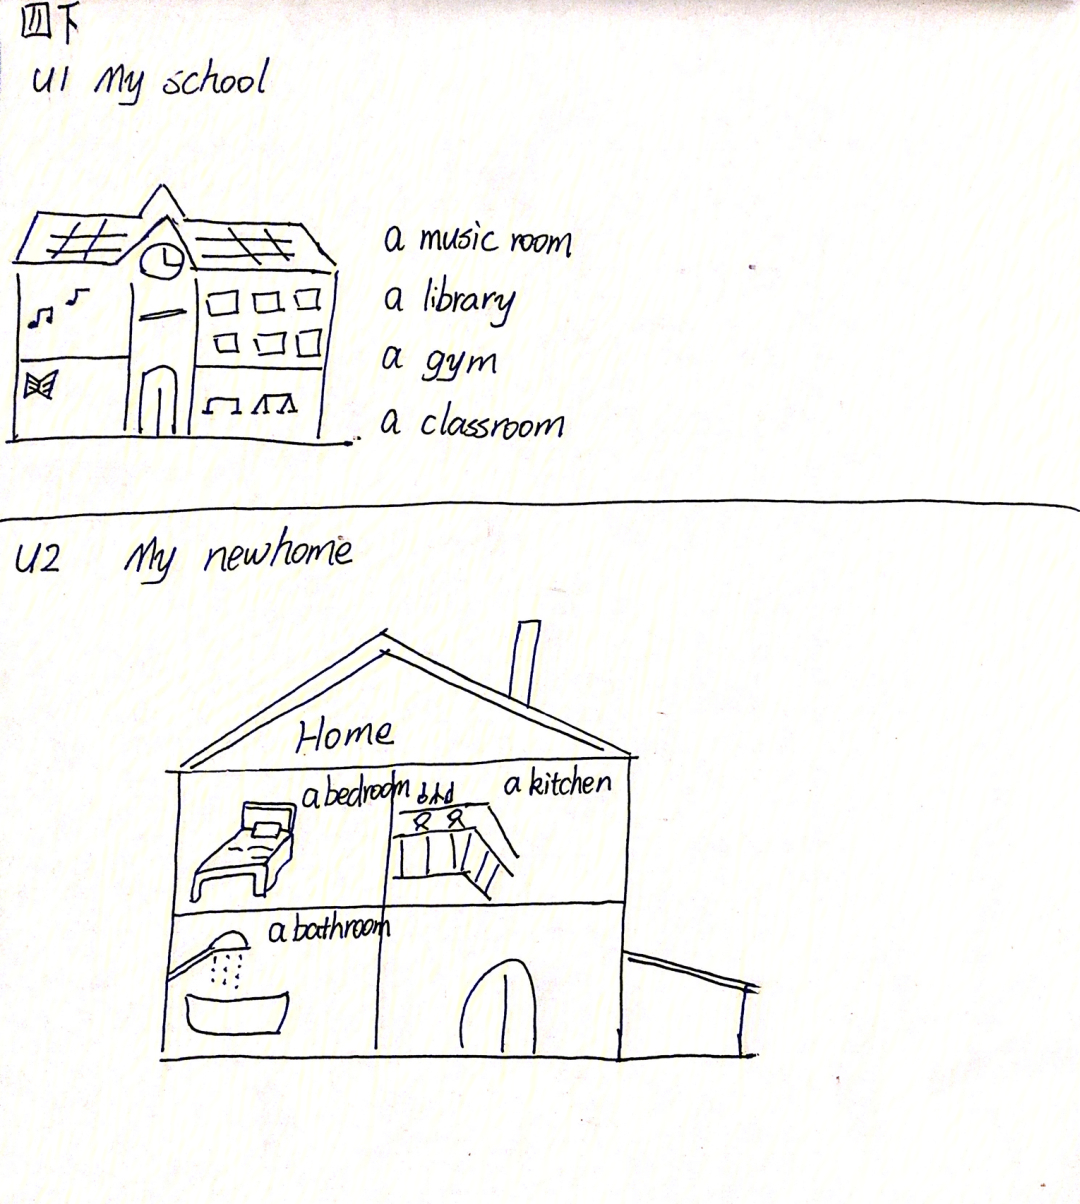 四下
U1 My school
a music room
a library
a gym
a classroom
U2 My newhome
Home
a bedroom
a kitchen
a bathroom